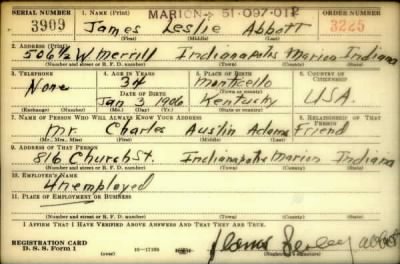 SERIAL NUMBER 1. NAME (Print) MARION 51-097-012 ORDER NUMBER
3909 James Leslie Abbott 3225
(First) (Middle) (Last)
2. ADDRESS (Print)
506½ W Merrill Indianapolis Marion Indiana
(Number and street or R. F. D. number) (Town) (County) (State)
3. TELEPHONE 4. AGE IN YEARS 5. PLACE OF BIRTH 6. COUNTRY OF CITIZENSHIP
None 34 Monticello
DATE OF BIRTH (Town or county)
Jan 3 1906 Kentucky U.S.A.
(Exchange) (Number) (Mo.) (Day) (Yr.) (State or country)
7. NAME OF PERSON WHO WILL ALWAYS KNOW YOUR ADDRESS 8. RELATIONSHIP OF THAT PERSON
Mr Charles Austin Adams Friend
(Mr., Mrs., Miss) (First) (Middle) (Last)
9. ADDRESS OF THAT PERSON
816 Church St. Indianapolis Marion Indiana
(Number and street or R. F. D. number) (Town) (County) (State)
10. EMPLOYER'S NAME
Unemployed
11. PLACE OF EMPLOYMENT OR BUSINESS
(Number and street or R. F. D. number) (Town) (County) (State)
I AFFIRM THAT I HAVE VERIFIED ABOVE ANSWERS AND THAT THEY ARE TRUE.
REGISTRATION CARD
D. S. S. Form 1 James Abbott